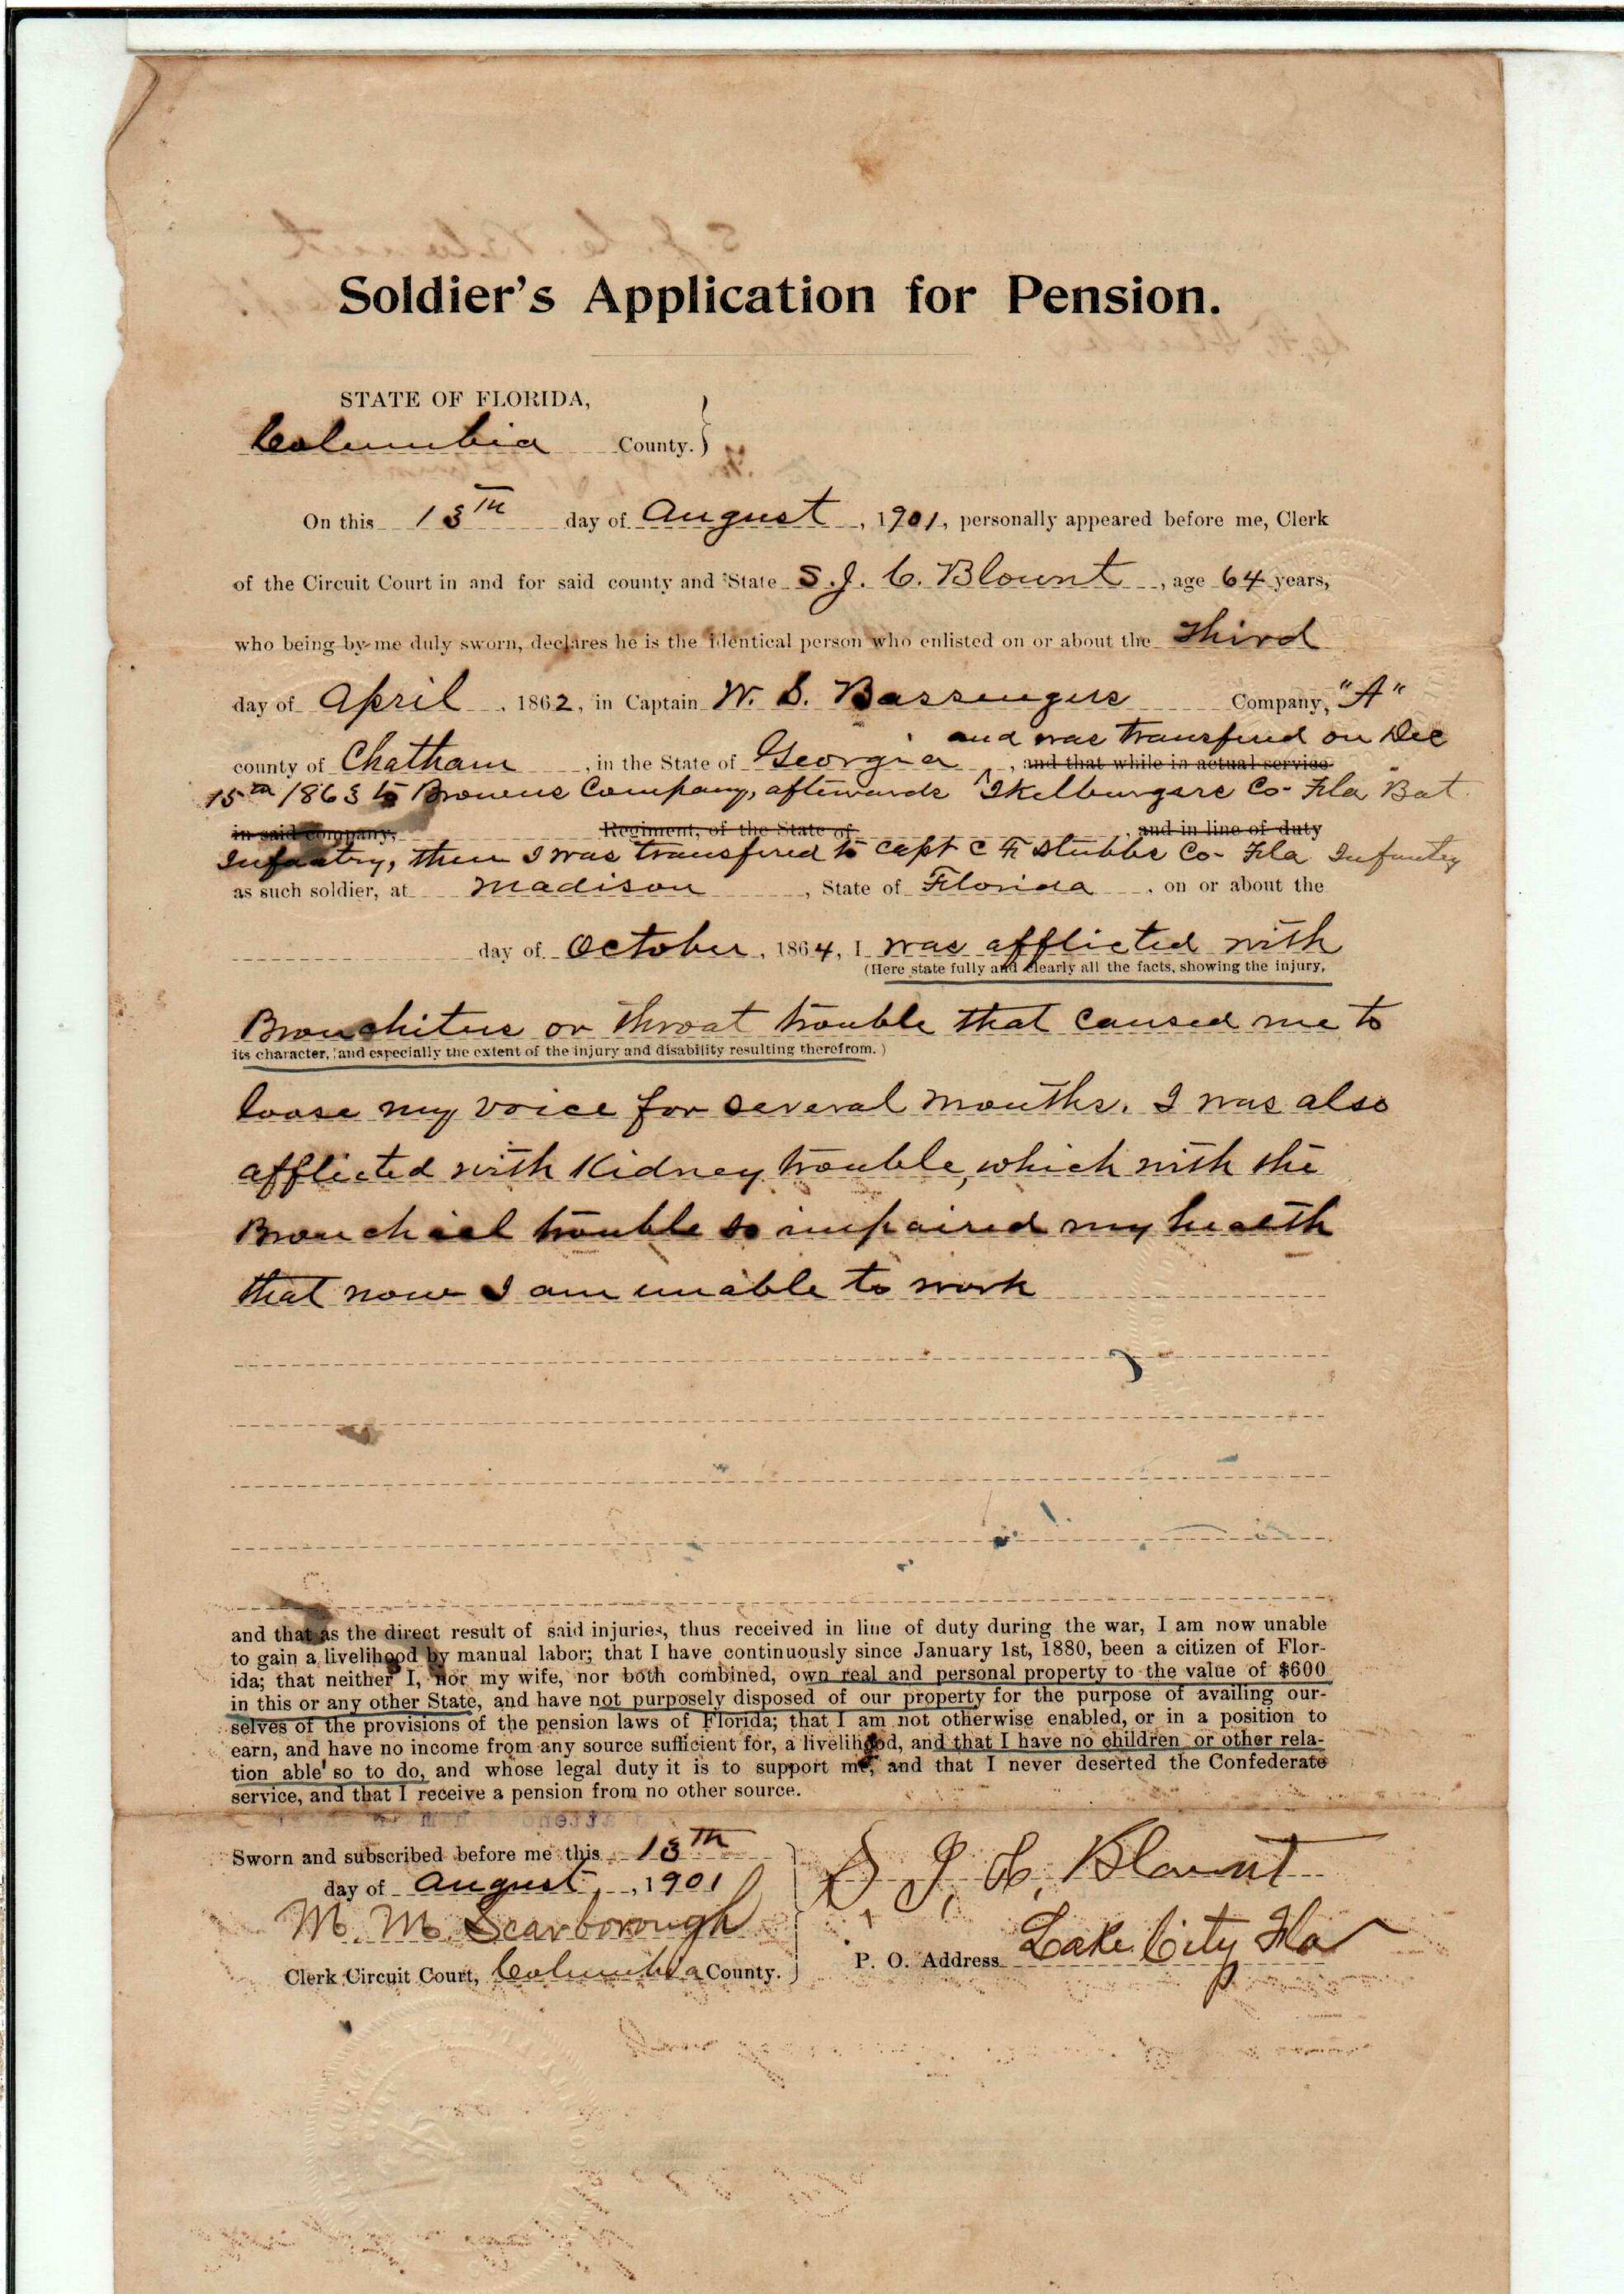 Soldier's Application for Pension.
STATE OF FLORIDA,
Columbia County.
On this 13th day of August, 1901, personally appeared before me, Clerk
of the Circuit Court in and for said county and State S. J. C. Blount, age 64 years,
who being by me duly sworn, declares he is the identical person who enlisted on or about the Third
day of April, 1862, in Captain W. S. Bassengers Company, "A"
and was transfired on Dec
county of Chatham, in the State of Georgia, and that while in actual service
15th 1863 to Browens Company, afterwards Co- Fla Bat
in said company, Regiment, of the State of, and in line of duty
Infantry, then I was transfired to Capt C F Stubbs Co- Fla Infantry
as such soldier, at Madison, State of Florida, on or about the
day of October, 1864, I was afflicted with
(Here state fully and clearly all the facts, showing the injury,
Bronchitus or Throat trouble that caused me to
its character, and especially the extent of the injury and disability resulting therefrom.)
loose my voice for several months. I was also
afflicted with Kidney trouble, which with the
Bronchial trouble so impaired my health
that now I am unable to work
and that as the direct result of said injuries, thus received in line of duty during the war, I am now unable
to gain a livelihood by manual labor; that I have continuously since January 1st, 1880, been a citizen of Flor-
ida; that neither I, nor my wife, nor both combined, own real and personal property to the value of $600
in this or any other State, and have not purposely disposed of our property for the purpose of availing our-
selves of the provisions of the pension laws of Florida; that I am not otherwise enabled, or in a position to
earn, and have no income from any source sufficient for, a livelihood, and that I have no children or other rela-
tion able so to do, and whose legal duty it is to support me, and that I never deserted the Confederate
service, and that I receive a pension from no other source.
Sworn and subscribed before me this 13th
day of August, 1901
S. J. C. Blount
M. M. Scarborough
Clerk Circuit Court, Columbia County.
P. O. Address Lake City Fla